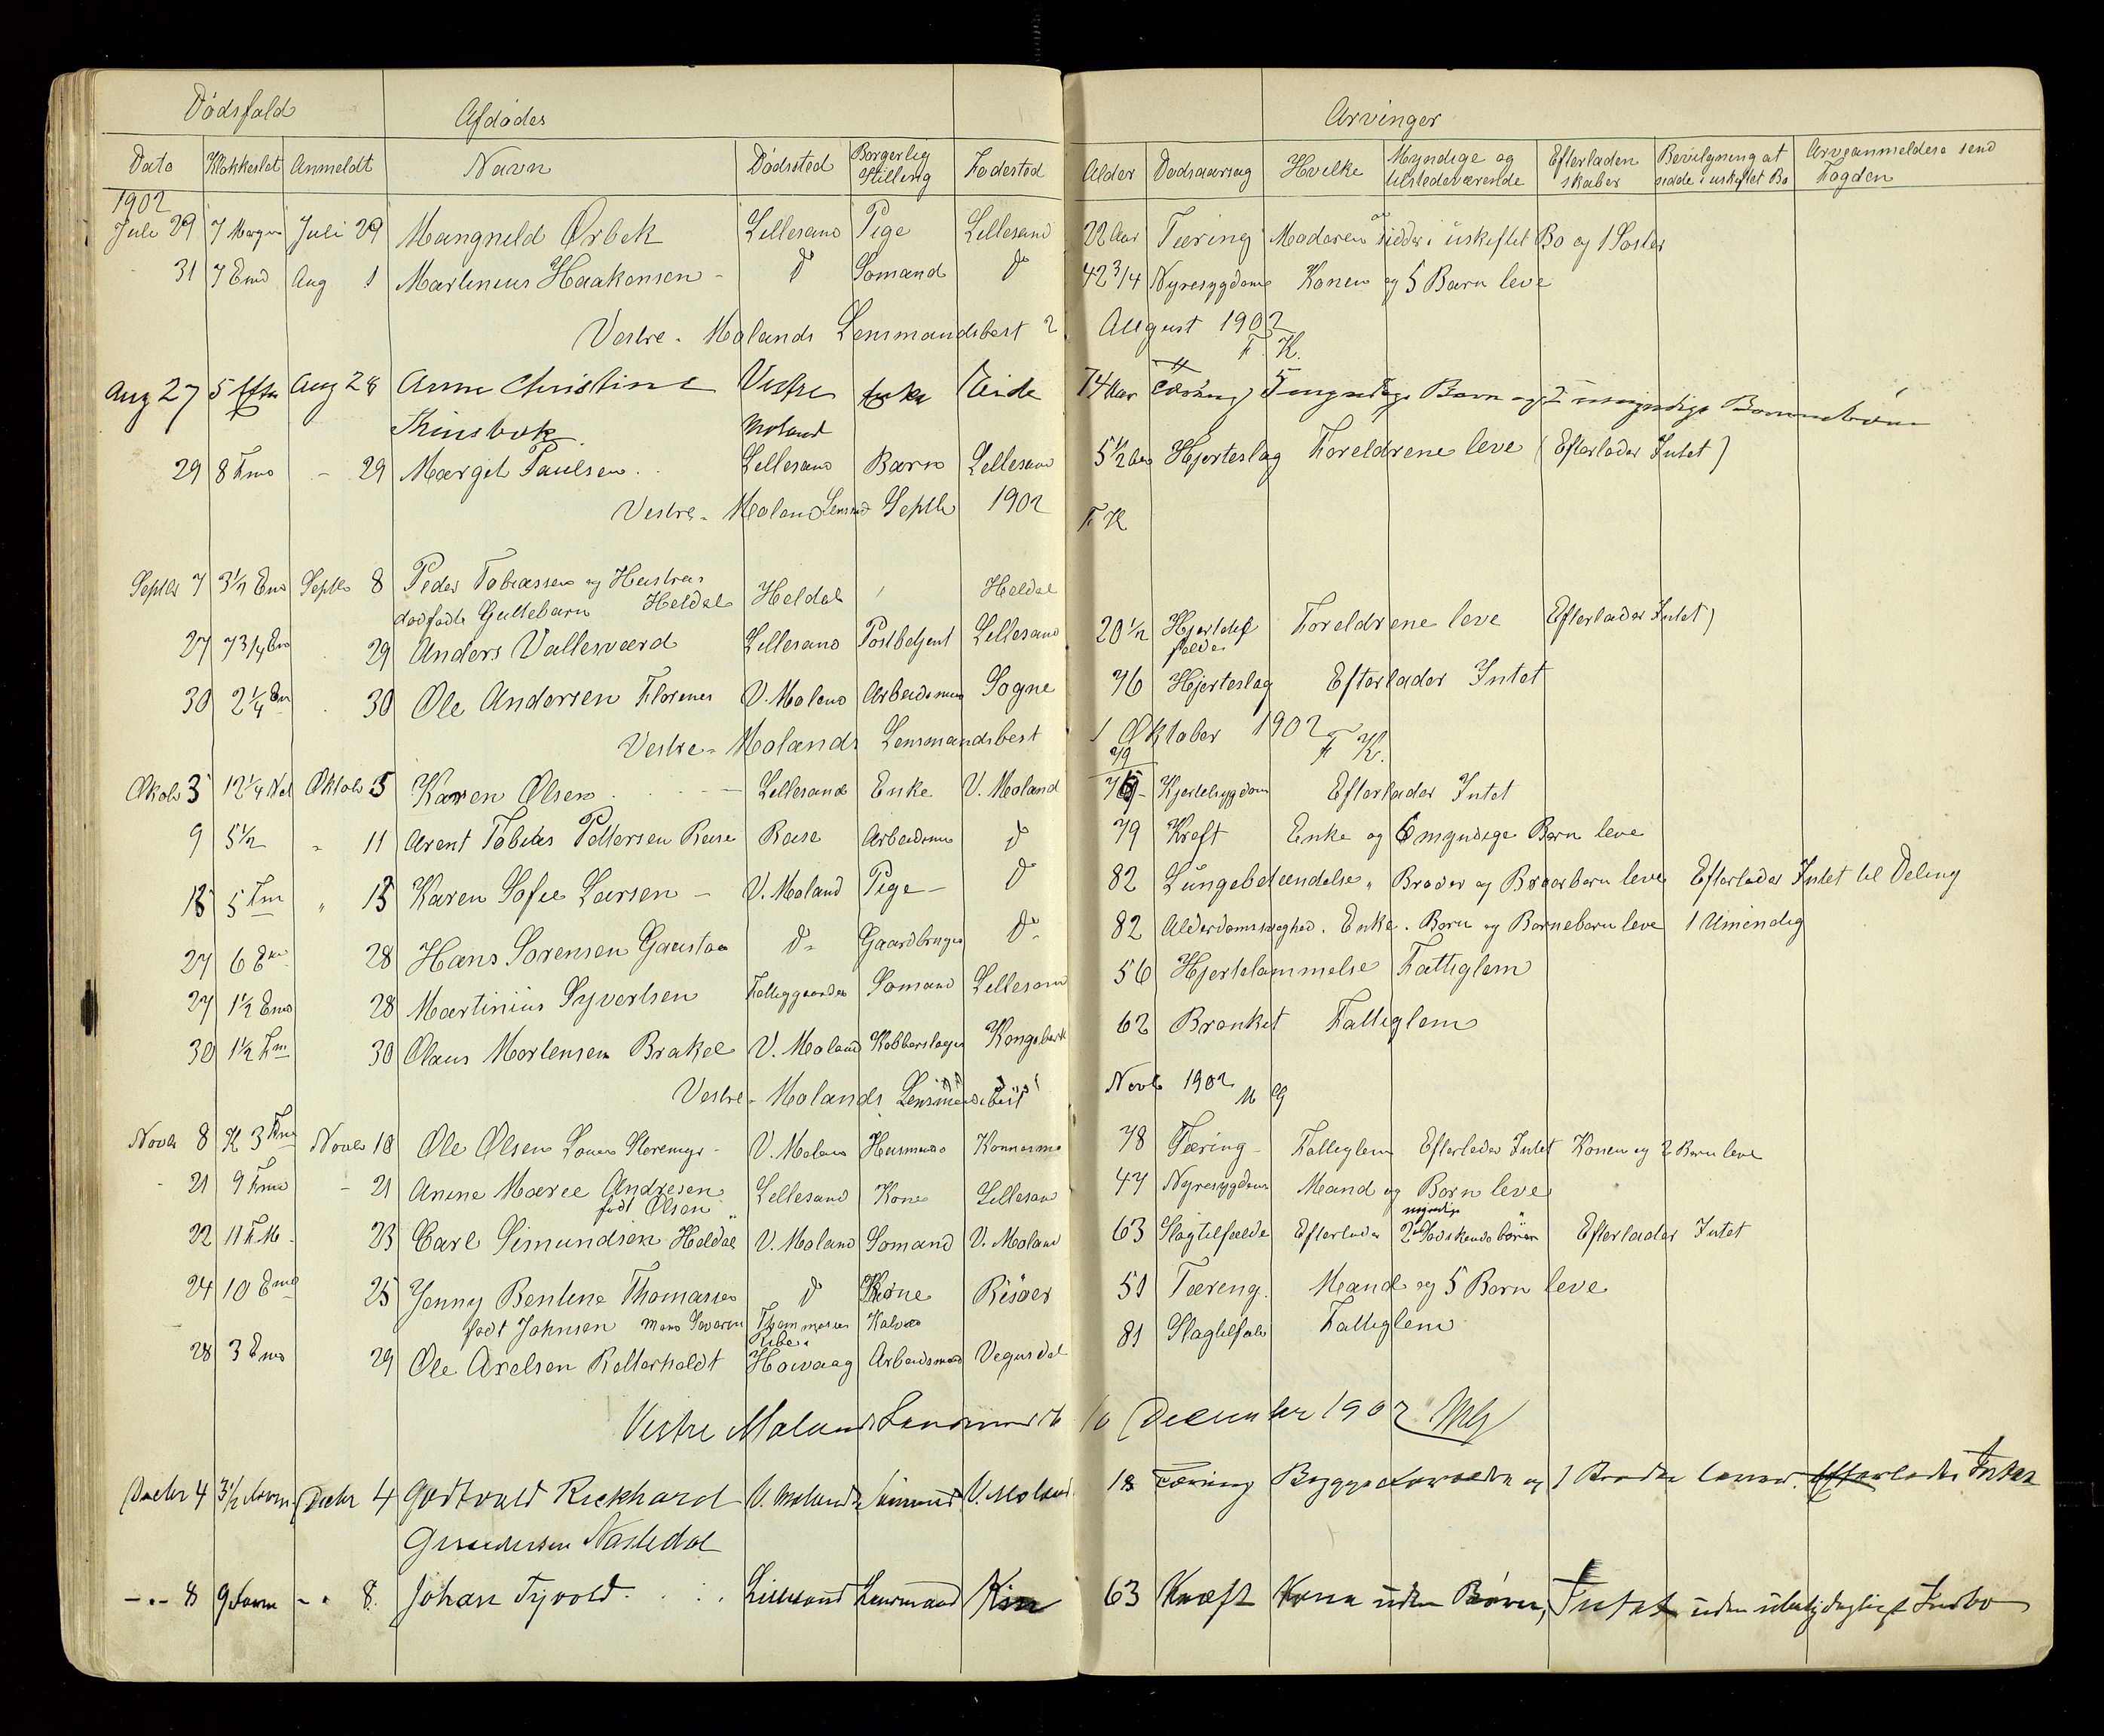 Dödsfald Afdödes Arvinger
Dato Klokkeslet Anmeldt Navn Dödssted Borgerlig Stilling Födested Alder Dödsaarsag Hvilke Myndige og tilstedeværende Efterladenskaber Bevilgning at sidde i uskiftet Bo Arveanmeldelse send Fogden
1902
Juli 29 7 Morgen Juli 29 Mangnild Ørbek Lillesand Pige Lillesand 22 Aar Tæring Moderen sidder i uskiftet Bo og 1 Söster
31 7 Emd Aug 1 Martinius Haakonsen - do Sömand do 42 3/4 Nyresygdom Konen og 5 Börn leve
Vestre-Molands Lensmandsbest 2 August 1902
F. K.
Aug 27 5 Eftm Aug 28 Anne Christine Vestre Enke Eide 74 Aar Tæring 5 myndige Børn og 2 umyndige Børnebørn
Moland
29 8 Fmd - 29 Margit Paulsen Lillesand Barn Lillesand 5 1/2 Aar Hjerteslag Foreldrene leve (Efterlader Intet)
Vestre-Moland Lensmd Septb 1902 F K
Septbr 7 3 1/2 Emd Septb 8 Peder Tobiassen og Hustrus Heldal Heldal
dödfödte Guttebarn Heldal
27 7 3/4 Em 29 Anders Vallesværd Lillesand Postbetjent Lillesand 20 1/2 Foreldrene leve Efterlader Intet)
30 2 1/4 Em 30 Ole Andersen Florenes V. Moland Arbeidsman Sögne 76 Hjerteslag Efterlader Intet
Vestre-Molands Lensmandsbest 1 Oktober 1902
F K.
79
3 12 1/4 Nat Oktob 5 Karen Olsen Lillesand Enke V. Moland Hjertesygdom Efterlader Intet
9 5 1/2 " 11 Arent Tobias Pettersen Reise Reise Arbeidsm do 79 Kreft Enke og 6 myndige Börn leve
5 Fm " 15 Karen Sofie Larsen - V. Moland Pige - do 82 Lungebetændelse " Broder og Broerbörn leve Efterlader Intet til Deling
27 6 Em 28 Hans Sörensen Gaustaa do Gaardbruger do 82 Alderdomssvaghed. Enke. Börn og Börnebörn leve 1 Umendig
27 1 1/2 Emd 28 Martinius Syvertsen Fattiggaarden Sömand Lillesand 56 Hjertelammelse Fattiglem
30 1 1/2 Fm 30 Olaus Mortensen Brakel V. Moland Kobberslager Kongsberk 62 Bronkit Fattiglem
Vestre-Molands Lensmandsbest Novb 1902
Novb 8 Kl 3 Fmd Novb 18 Ole Olsen V. Moland Husmand 78 Tæring - Fattiglem Efterlader Intet Konen og 2 Börn leve
- 21 9 Fmd - 21 Anine Marie Andresen Lillesand Kone Lillesand 47 Nyresygdom Mand og Börn leve
född Olsen
22 11 F.M. 23 Carl Simundsen Heldal V. Moland Sömand V. Moland 63 Slagtilfælde Efterlader 2 myndige Södskendebörn Efterlader Intet
24 10 Emd 25 Jenny Bentine Thomassen do Kone Risöer 51 Tæring. Mand og 5 Börn leve
födt Johnsen
28 3 Emd 29 Ole Axelsen Retterholdt Hövaag Arbeidsmand Vegusdal 81 Slagtilfæl Fattiglem
Vestre Moland Lensmand 10 December 1902
Decbr 4 3 1/2 Decbr 4 Godtvald Rickhard V. Moland Sömand V. Moland 18 Tæring Begge Foreldre og 1 Broder lever. Efterlader Intet
Gundersen Nastedal
-.- 8 9 Form -. 8. Johan Tyvold Lillesand Lensmand 63 Kræft Kone uden Börn, Intet uden ubetydeligt Indbo